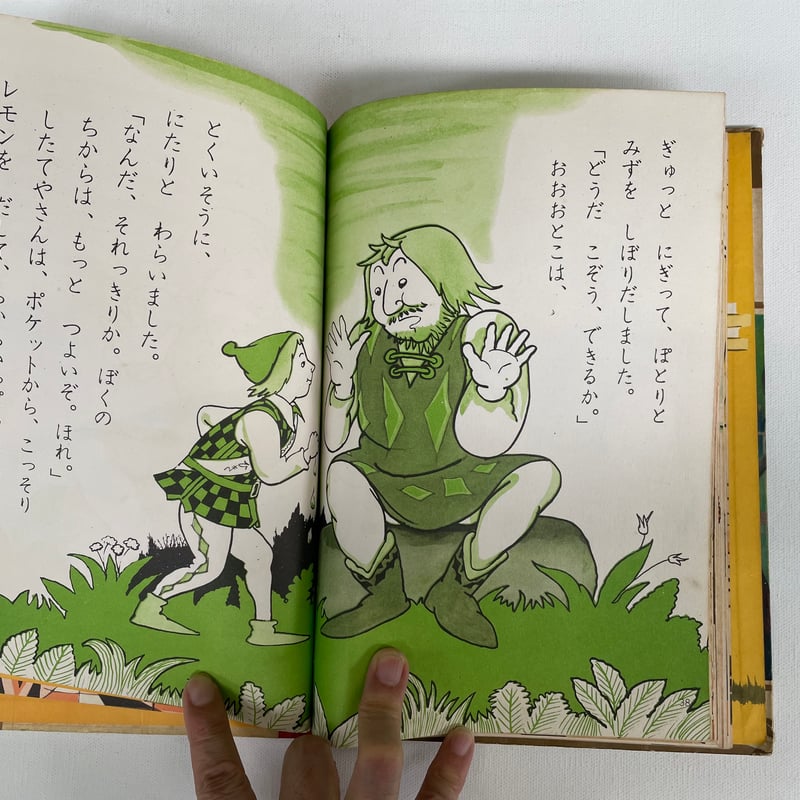 ぎゅっと にぎって、ぽとりと
みずを しぼりだしました。
「どうだ こぞう、できるか。」
おおおとこは、
とくいそうに、
にたりと わらいました。
「なんだ、それっきりか。ぼくの
ちからは、もっと つよいぞ。ほれ。」
したてやさんは、ポケットから、こっそり
レモンを だして、
38